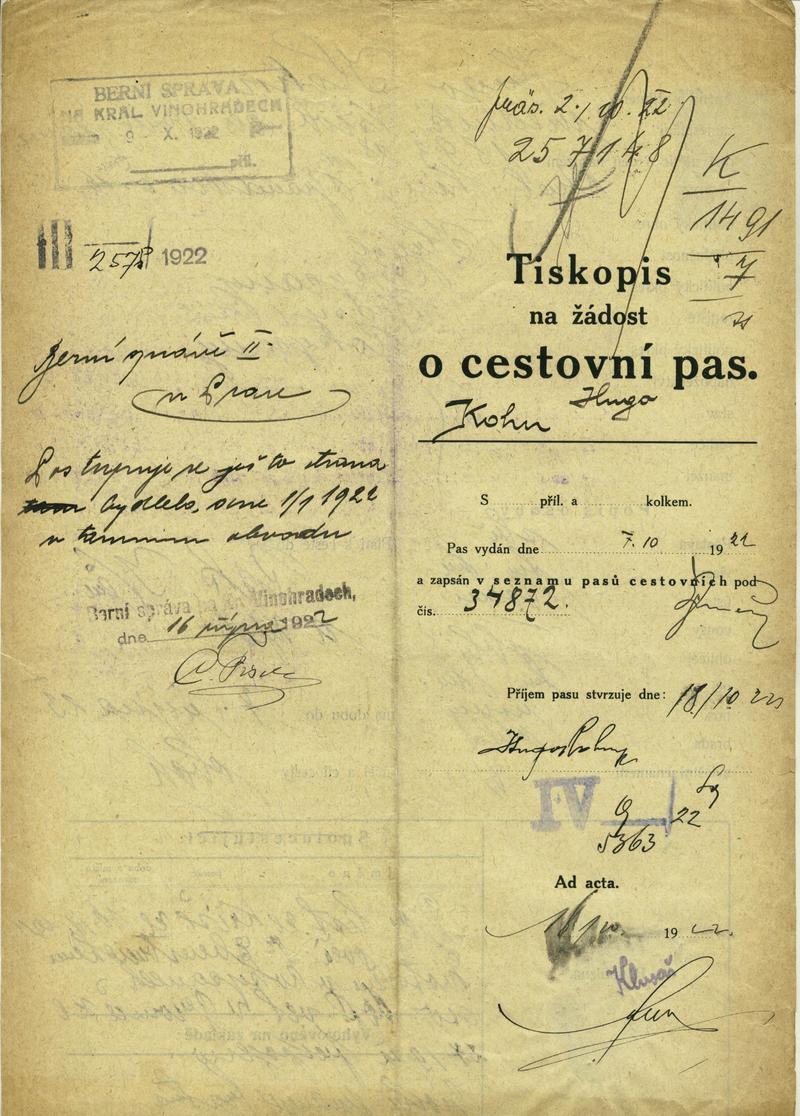 BERNÍ SPRÁVA
NA KRÁL. VINOHRADECH
9 - X. 1922
příl.
III 2578 1922
Berní správě II.
v Praze
Postupuje se ježto strana
bydlela, dne 1/1 1922
v tamním obvodu
Berní správa na Král. Vinohradech,
dne 16 října 1922
präs. 2./10. 22
257148
K
1491
7
Tiskopis
na žádost
o cestovní pas.
Kohn Hugo
S příl. a kolkem.
Pas vydán dne 7. 10 1922
a zapsán v seznamu pasů cestovních pod
čís. 34872.
Příjem pasu stvrzuje dne: 18/10 22
IV
5363 22
Ad acta.
1922.
Klusáč